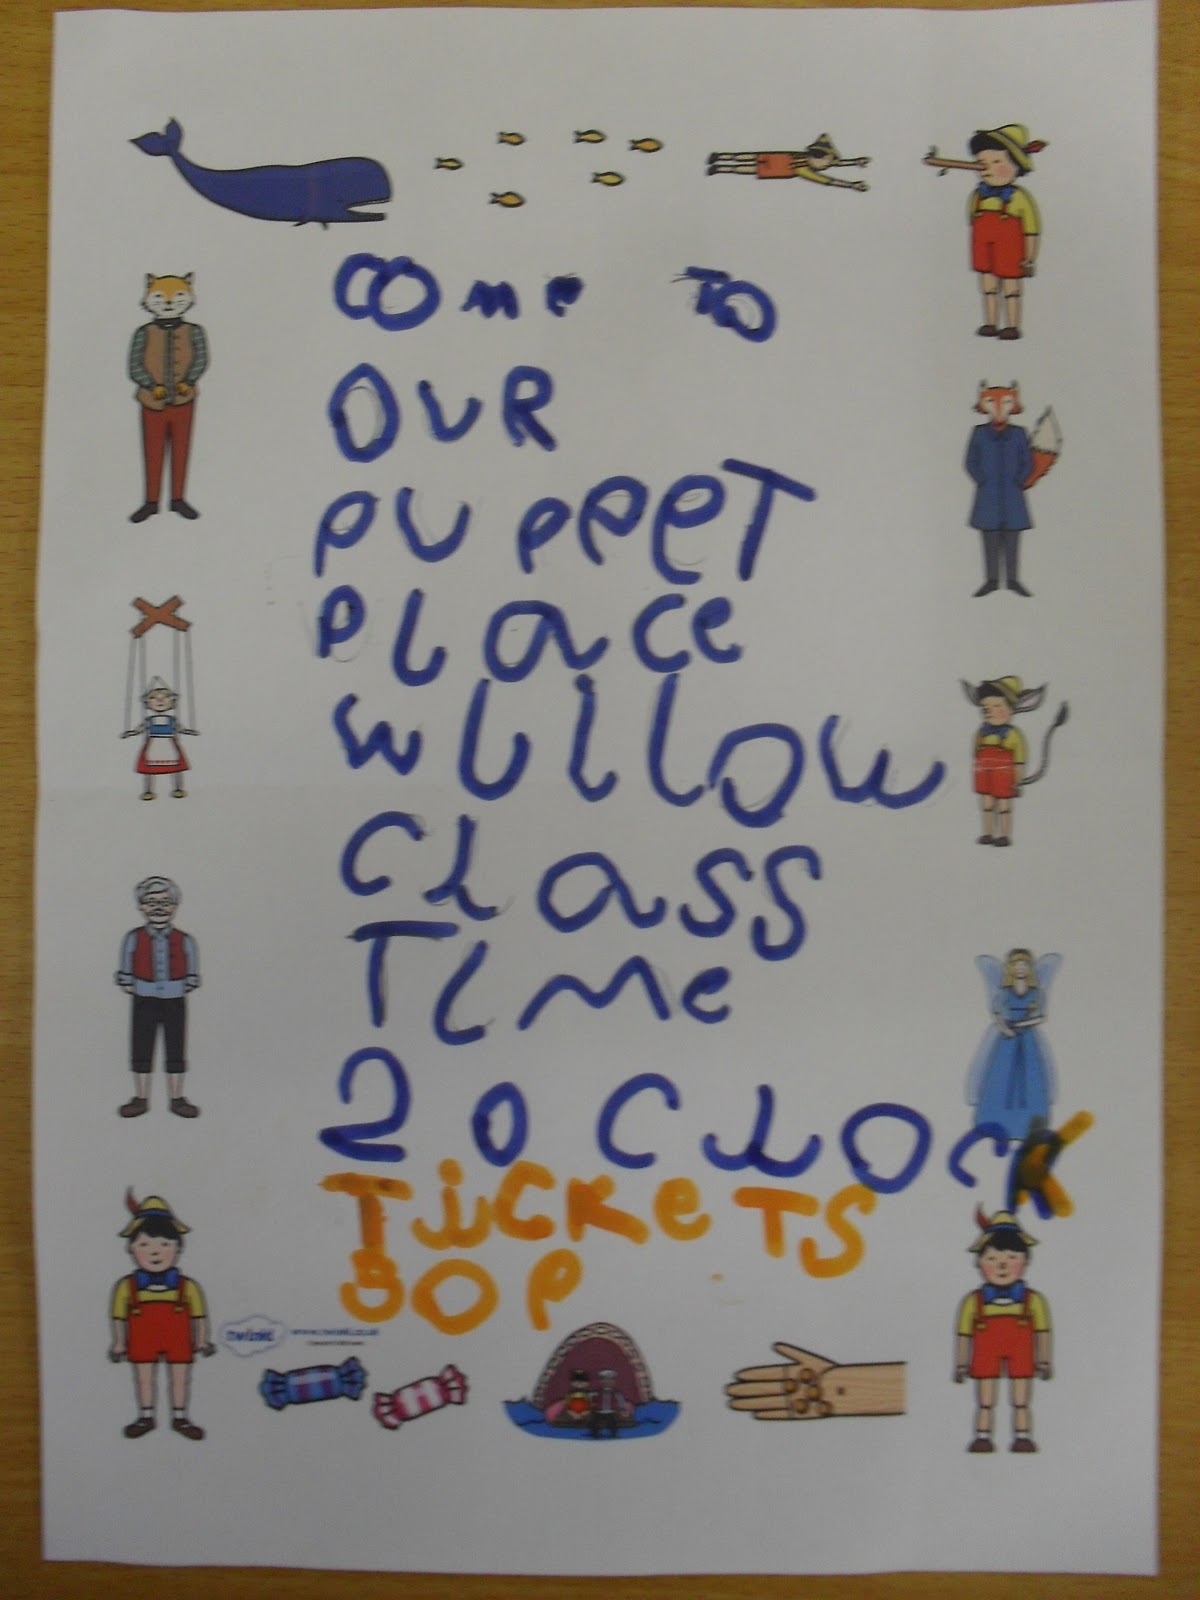 come TO
OUR
PUPPeT
Place
Willow
Class
Time
2 O Clock
TickeTS
50P
twinkl www.twinkl.co.uk